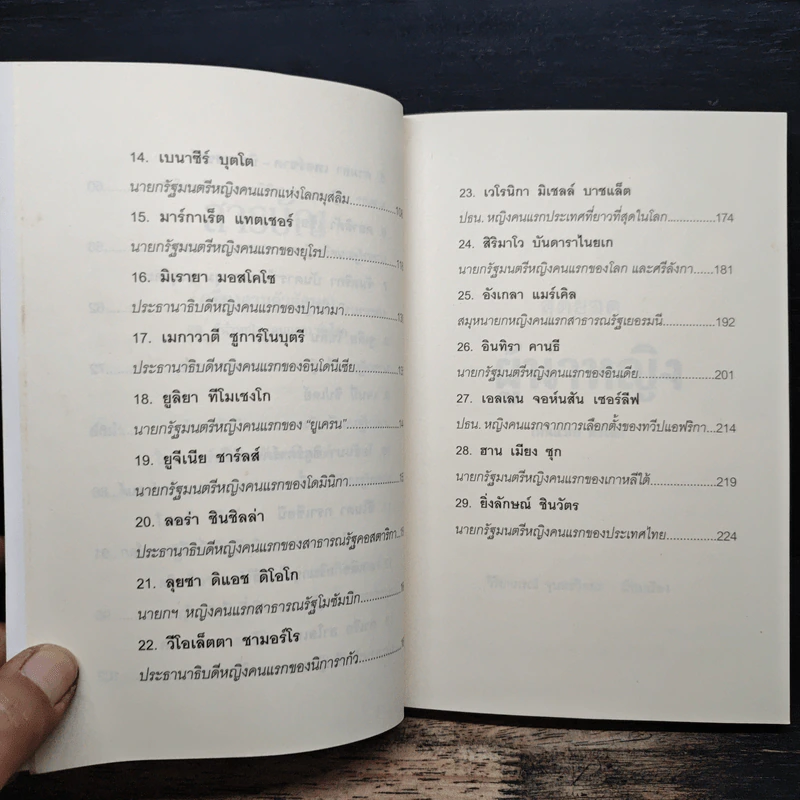 14. เบนาซีร์ บุตโต
นายกรัฐมนตรีหญิงคนแรกแห่งโลกมุสลิม
15. มาร์กาเร็ต แทตเชอร์
นายกรัฐมนตรีหญิงคนแรกของยุโรป
16. มิเรายา มอสโคโซ
ประธานาธิบดีหญิงคนแรกของปานามา
17. เมกาวาตี ซูการ์โนบุตรี
ประธานาธิบดีหญิงคนแรกของอินโดนีเซีย
18. ยูลิยา ทีโมเชงโก
นายกรัฐมนตรีหญิงคนแรกของ "ยูเครน"
19. ยูจีเนีย ชาร์ลส์
นายกรัฐมนตรีหญิงคนแรกของโดมินิกา
20. ลอร่า ชินชิลล่า
ประธานาธิบดีหญิงคนแรกของสาธารณรัฐคอสตาริกา
21. ลุยซา ดิแอช ดิโอโก
นายกฯ หญิงคนแรกสาธารณรัฐโมซัมบิก
22. วีโอเล็ตตา ชามอร์โร
ประธานาธิบดีหญิงคนแรกของนิการากัว
23. เวโรนิกา มิเชลล์ บาชแล็ต
ปธน. หญิงคนแรกประเทศที่ยาวที่สุดในโลก....................174
24. สิริมาโว บันดาราไนยเก
นายกรัฐมนตรีหญิงคนแรกของโลก และศรีลังกา......181
25. อังเกลา แมร์เคิล
สมุหนายกหญิงคนแรกสาธารณรัฐเยอรมนี................192
26. อินทิรา คานธี
นายกรัฐมนตรีหญิงคนแรกของอินเดีย......................201
27. เอลเลน จอห์นสัน เซอร์ลีฟ
ปธน. หญิงคนแรกจากการเลือกตั้งของทวีปแอฟริกา..214
28. ฮาน เมียง ซุก
นายกรัฐมนตรีหญิงคนแรกของเกาหลีใต้..................219
29. ยิ่งลักษณ์ ชินวัตร
นายกรัฐมนตรีหญิงคนแรกของประเทศไทย.............224